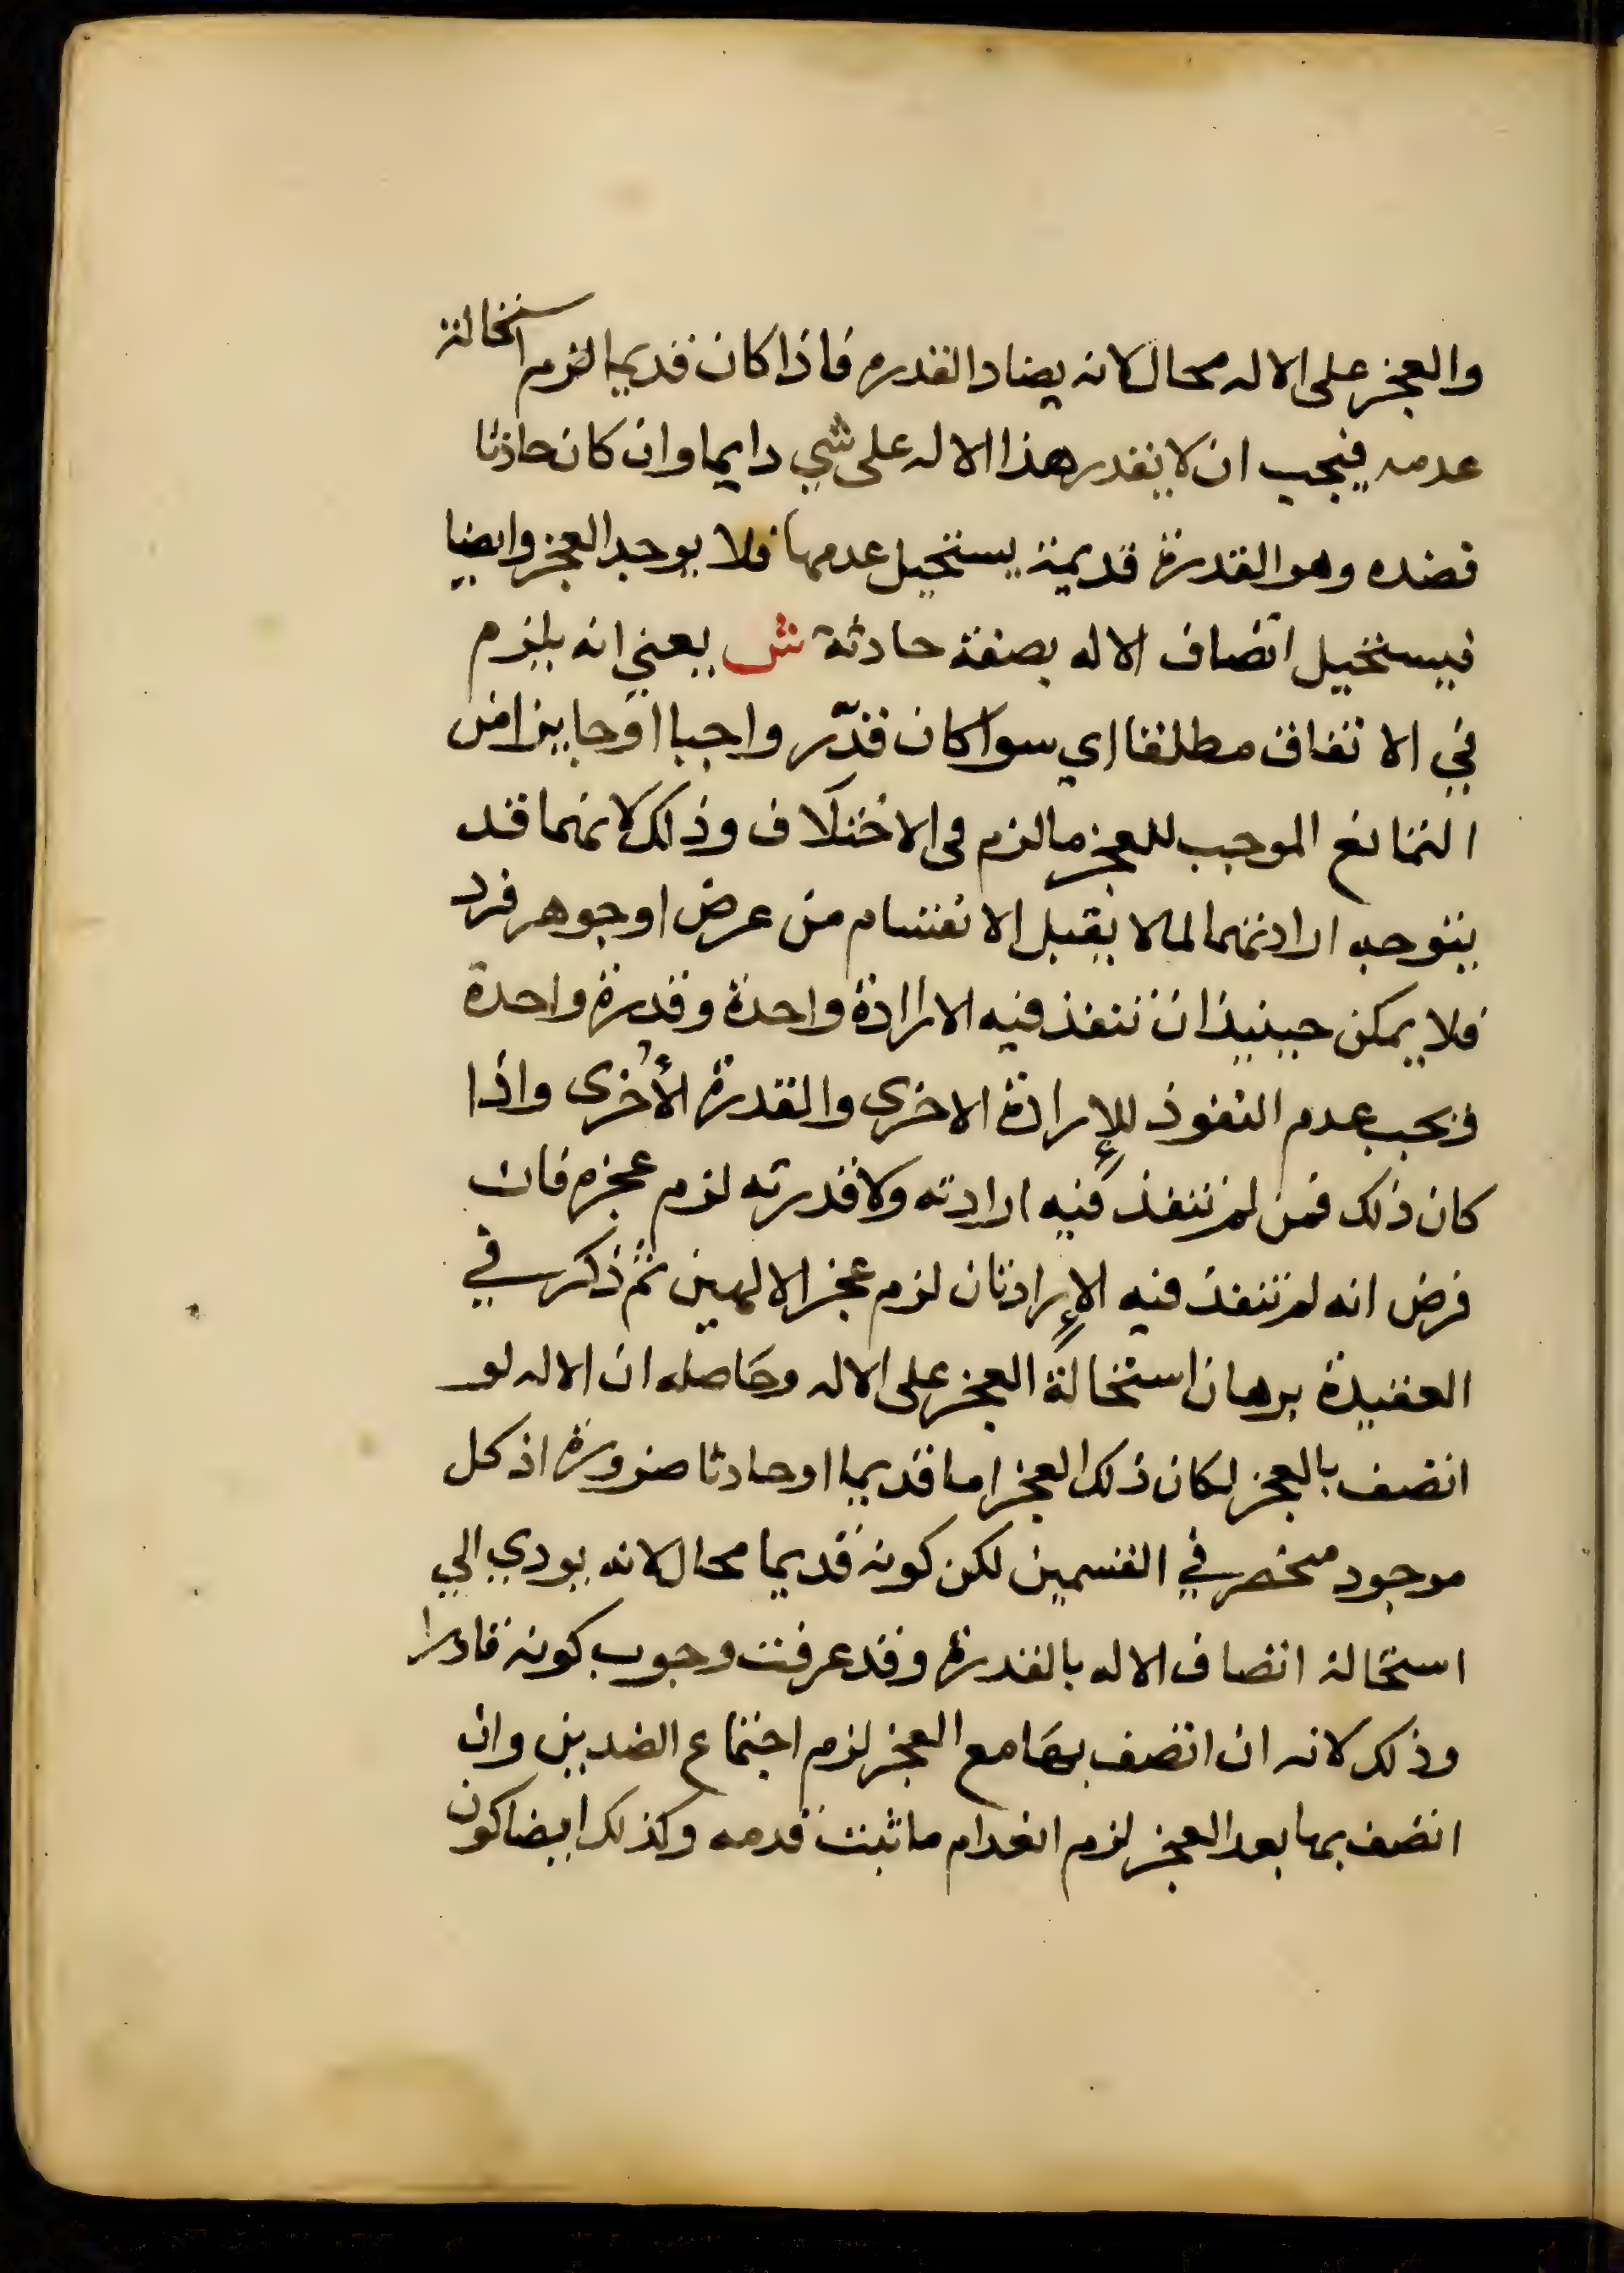 والعجز على الاله محال لانه يضاد القدرة فاذا كان قديما لزم استحالة
عدمه فيجب ان لا يقدر هذا الاله على شي دايما وان كان حادثا
فضده وهو القدرة قديمة يستحيل عدمها فلا يوجد العجز وايضا
فيستحيل اتصاف الاله بصفة حادثة ش يعني انه يلزم
في الاتفاق مطلقا اي سوا كان قدّر واجبا او جايزا من
التمانع الموجب للعجز ما لزم فى الاختلاف وذلك لانهما قد
يتوجه ارادتهما لما لا يقبل الانقسام من عرض او جوهر فرد
فلا يمكن حينيذ ان تنفذ فيه الا ارادة واحدة وقدرة واحدة
ويجب عدم النفوذ للإرادة الاخرى والقدرة الأخرى واذا
كان ذلك فمن لم تنفذ فيه ارادته ولا قدرته لزم عجزه فان
فرض انه لم تنفذ فيه الإرادتان لزم عجز الالهين ثم ذكر في
العقيدة برهان استحالة العجز على الاله وحاصله ان الاله لو
اتصف بالعجز لكان ذلك العجز اما قديما او حادثا ضرورة اذ كل
موجود منحصر في القسمين لكن كونه قديما محال لانه يودي الي
استحالة اتصاف الاله بالقدرة وقد عرفت وجوب كونه قادرا
وذلك لانه ان اتصف بها مع العجز لزم اجتماع الضدين وان
اتصف بها بعد العجز لزم انعدام ما ثبت قدمه وكذلك ايضا كون